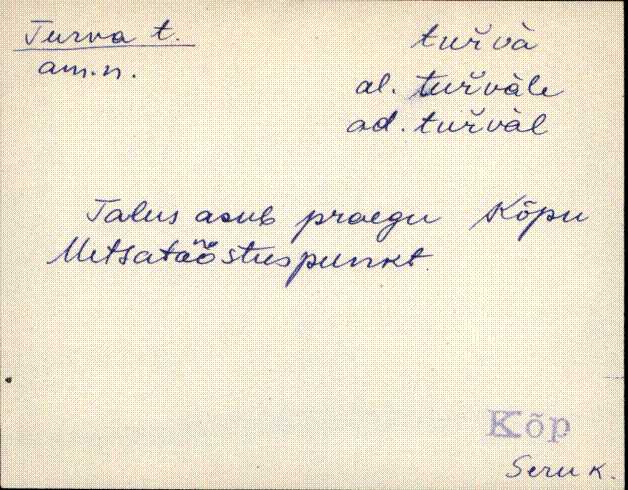 Turva t. turvà
am.n.
al. turvàle
ad. turvàl
Talus asub praegu Kõpu
Metsatööstuspunkt.
Kõp
Seru k.